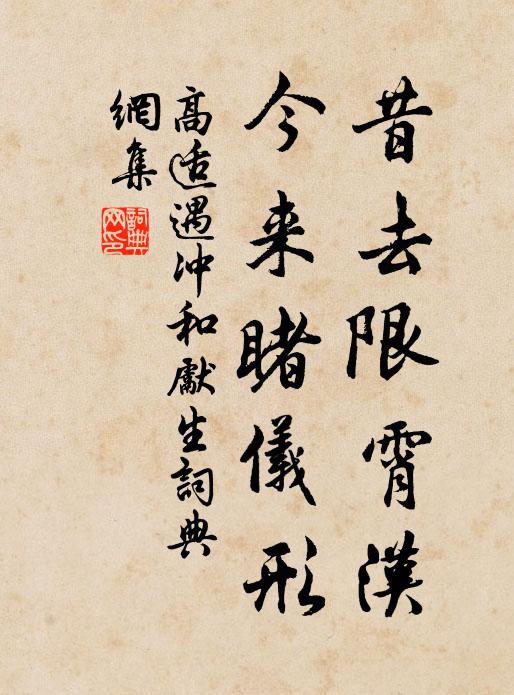 昔去限霄漢
今来睹儀形
高适遇沖和獻生詞典
網集
詞典網印